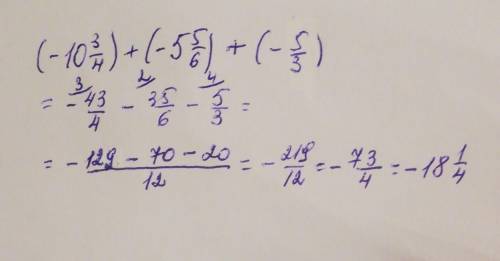 (-10 3/4) + (-5 5/6) + (-5/3)
= -43/4 (3 - 35/6 (2 - 5/3 (4 =
= -129 - 70 - 20/12 = -219/12 = -73/4 = -18 1/4